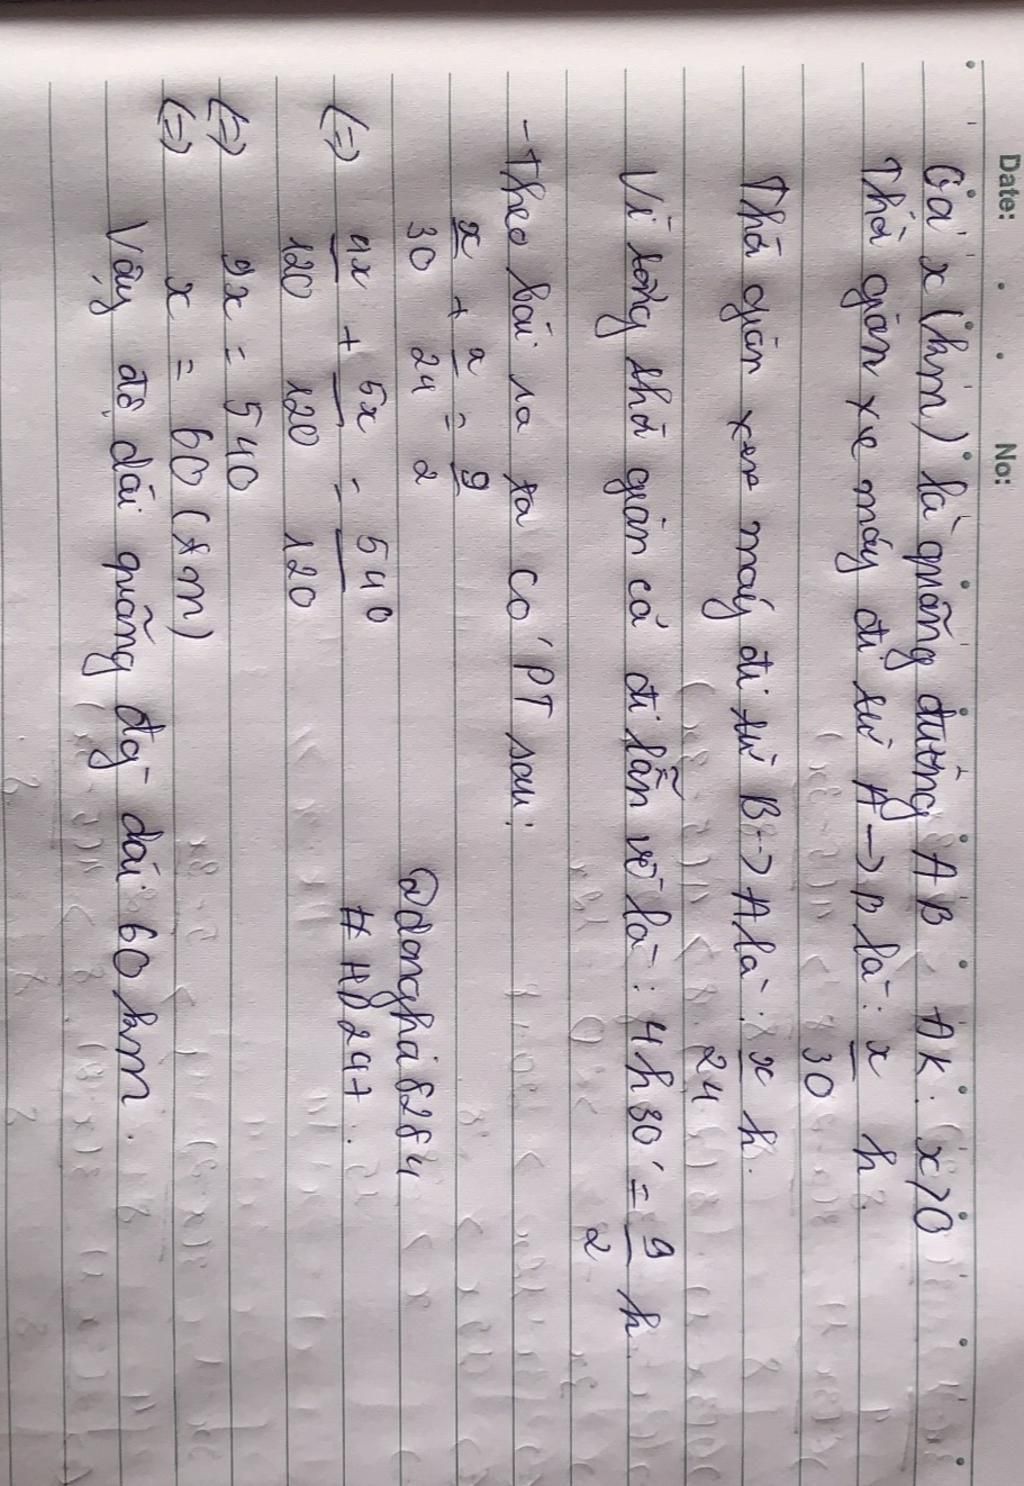 Date: No:
Gọi x (km) là quãng đường AB ĐK: x>0
Thời gian xe máy đi từ A → B là: x/30 h
Thời gian xe máy đi từ B → A là: x/24 h.
Vì tổng thời gian cả đi lẫn về là: 4h30' = 9/2 h.
- Theo bài ra ta có PT sau:
x/30 + x/24 = 9/2
@dongha8284
(=) 4x/120 + 5x/120 = 540/120
#HD247
(=) 9x = 540
(=) x = 60 (km)
Vậy độ dài quãng đg dài 60 km.